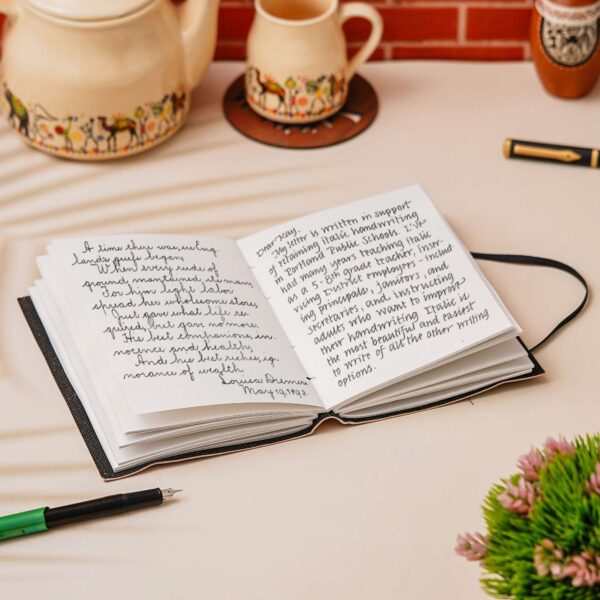 A time there was, ere Eng
lands griefs began,
When every rude of
ground maintained its man;
For him light labor
spread her wholesome store,
Just gave what life re
quired, but gave no more.
His best companions, in
nocence and health;
And his best riches, ig
norance of wealth.
Louisa
May 19, 1893.
Dear Kay,
My letter is written in support
of retaining italic handwriting
in Portland Public Schools. I've
had many years teaching italic
as a 5-8th grade teacher, inser-
vicing District employees - includ
ing principals, janitors, and
secretaries, and instructing
adults who want to improve
their handwriting. Italic is
the most beautiful and easiest
to write of all the other writing
options.